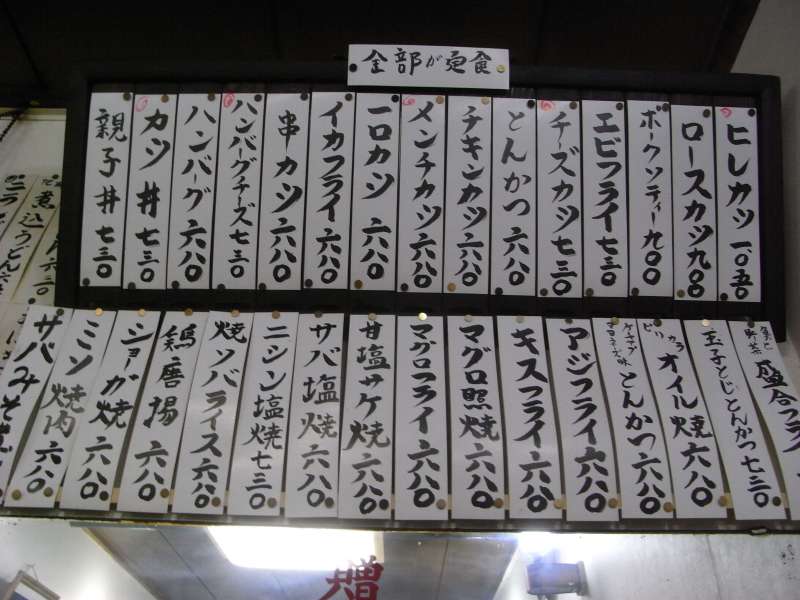 全部が定食
ヒレカツ 一〇五〇
ロースカツ 九〇〇
ポークソティー 九〇〇
エビフライ 七三〇
チーズカツ 七三〇
とんかつ 六八〇
チキンカツ 六八〇
メンチカツ 六八〇
一口カツ 六八〇
イカフライ 六八〇
串カツ 六八〇
ハンバーグチーズ 七三〇
ハンバーグ 六八〇
カツ丼 七三〇
親子丼 七三〇
盛合フラ
玉子とじとんかつ 七三〇
ピリカラ
オイル焼 六八〇
ケチャップ
マヨネーズ味
とんかつ 六八〇
アジフライ 六八〇
キスフライ 六八〇
マグロ照焼 六八〇
マグロフライ 六八〇
甘塩サケ焼 六八〇
サバ塩焼 六八〇
ニシン塩焼 七三〇
焼ソバライス 六八〇
鶏唐揚 六八〇
ショーガ焼 六八〇
ミソ焼肉 六八〇
サバみそ煮
煮込うどん
増